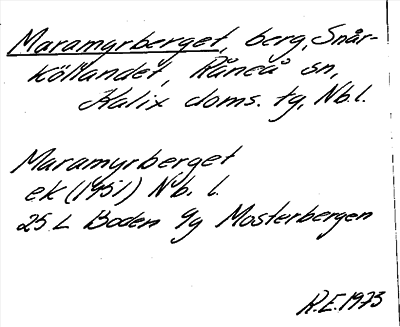 Maramyrberget, berg, Snår-
köllandet, Råneå sn,
Kalix doms. tg, Nb.l.
Maramyrberget
ek (1951) Nb. l.
25 L Boden 9g Mosterbergen
R.E. 1973